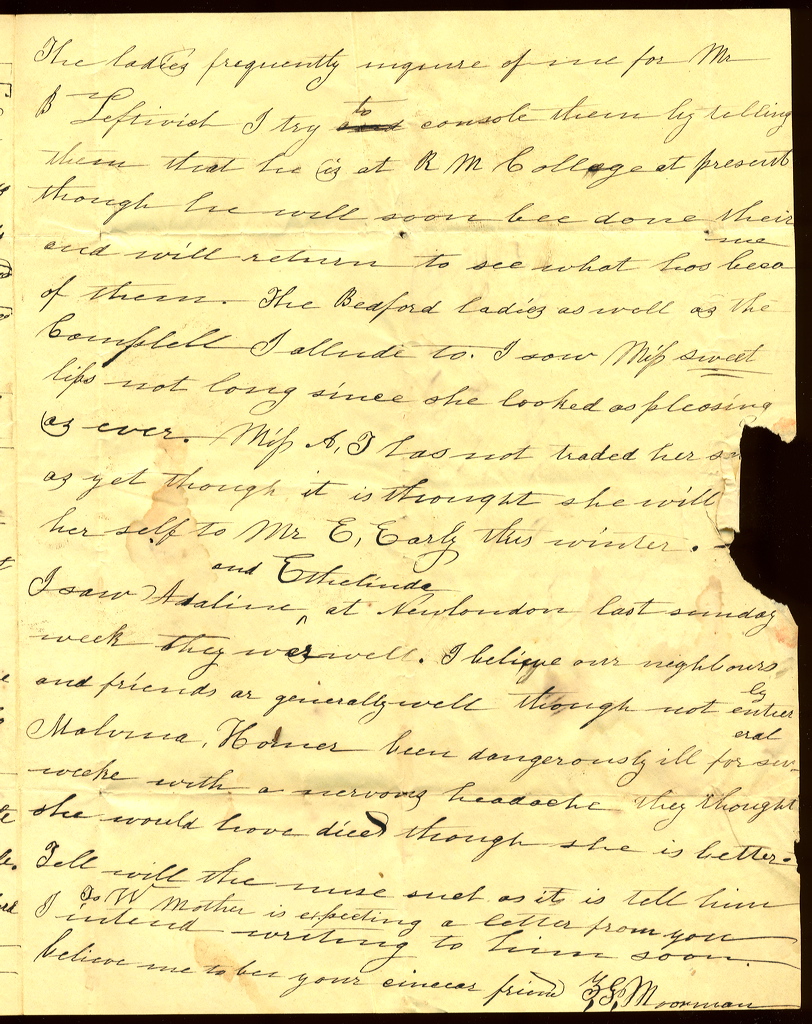 The ladies frequently inquire of me for Mr
B Leftwich I try to and console them by telling
them that he is at R M College at present
though he will soon bee done their
and will return to see what has beco me
of them. The Bedford ladies as well as the
Campbell I allude to. I saw Miss sweet
lips not long since she looked as pleasing
as ever. Miss A, T has not traded her
as yet though it is thought she will
her self to Mr E, Early this winter.
and Ethelinda
I saw Adaline at Newlondon last sunday
week they wer well. I believe our neighbours
and friends ar generally well though not entier ly
Malvina, Horner been dangerously ill for sev- eral
weeke with a nervous headache they thought
she would have died though she is better.
Tell will the nuse such as it is tell him
To W Mother is expecting a letter from you
I intend writing to him soon.
believe me to bee your cinccar friend
Moorman